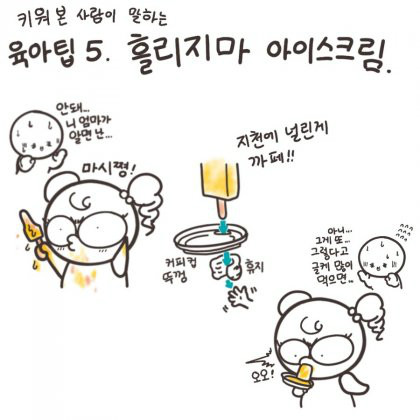 키워 본 사람이 말하는
육아팁 5. 흘리지마 아이스크림.
안돼...
니 엄마가
알면 난...
마시쪙!
지천에 널린게
까페!!
커피컵
뚜껑
휴지
아니...
그게 또...
그렇다고
글케 많이
먹으면..
오오!